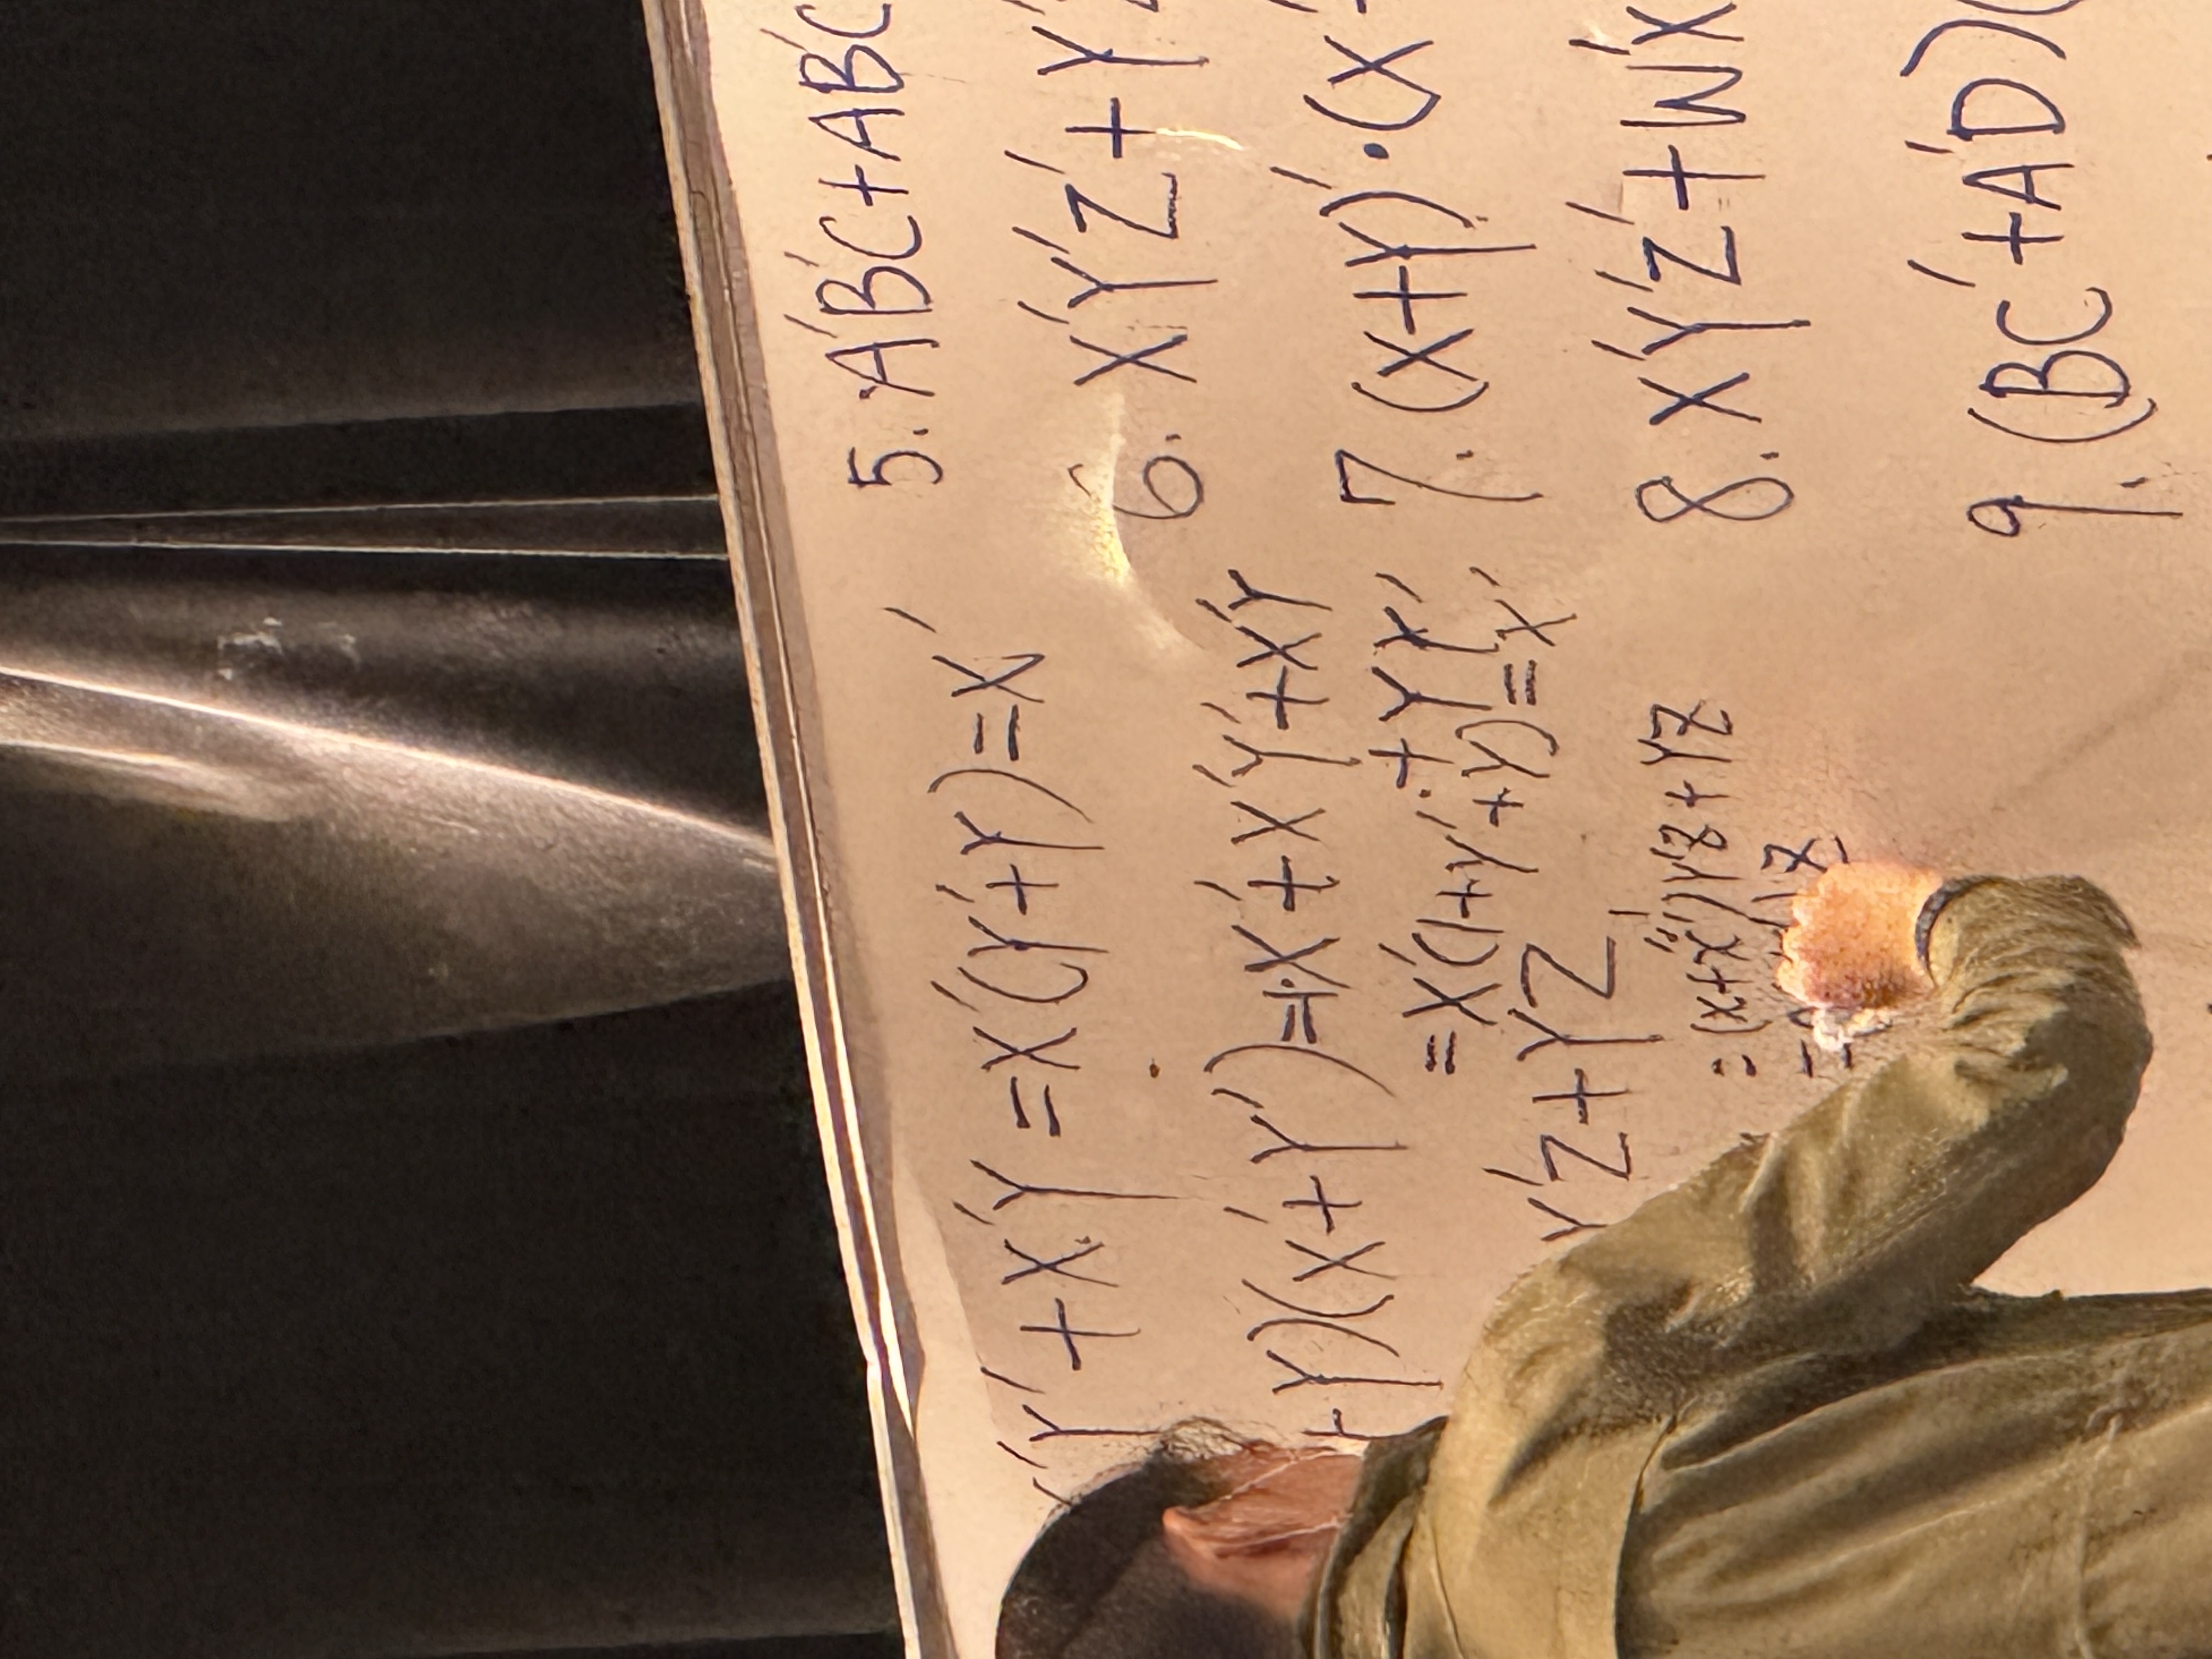 'Y' + X'Y = X'(Y'+Y) = X'
+Y)(X'+Y') = X' + X'Y' + X'Y
+ YY'
= X'(1+Y'+Y) = X'
Y'Z + YZ
= (X+X')Y'Z + YZ
Z
5. A'B'C + AB'C
6. X'Y'Z' + Y'
7. (X+Y)' · (X'
8. X'Y'Z' + W'X
9. (BC' + A'D)(